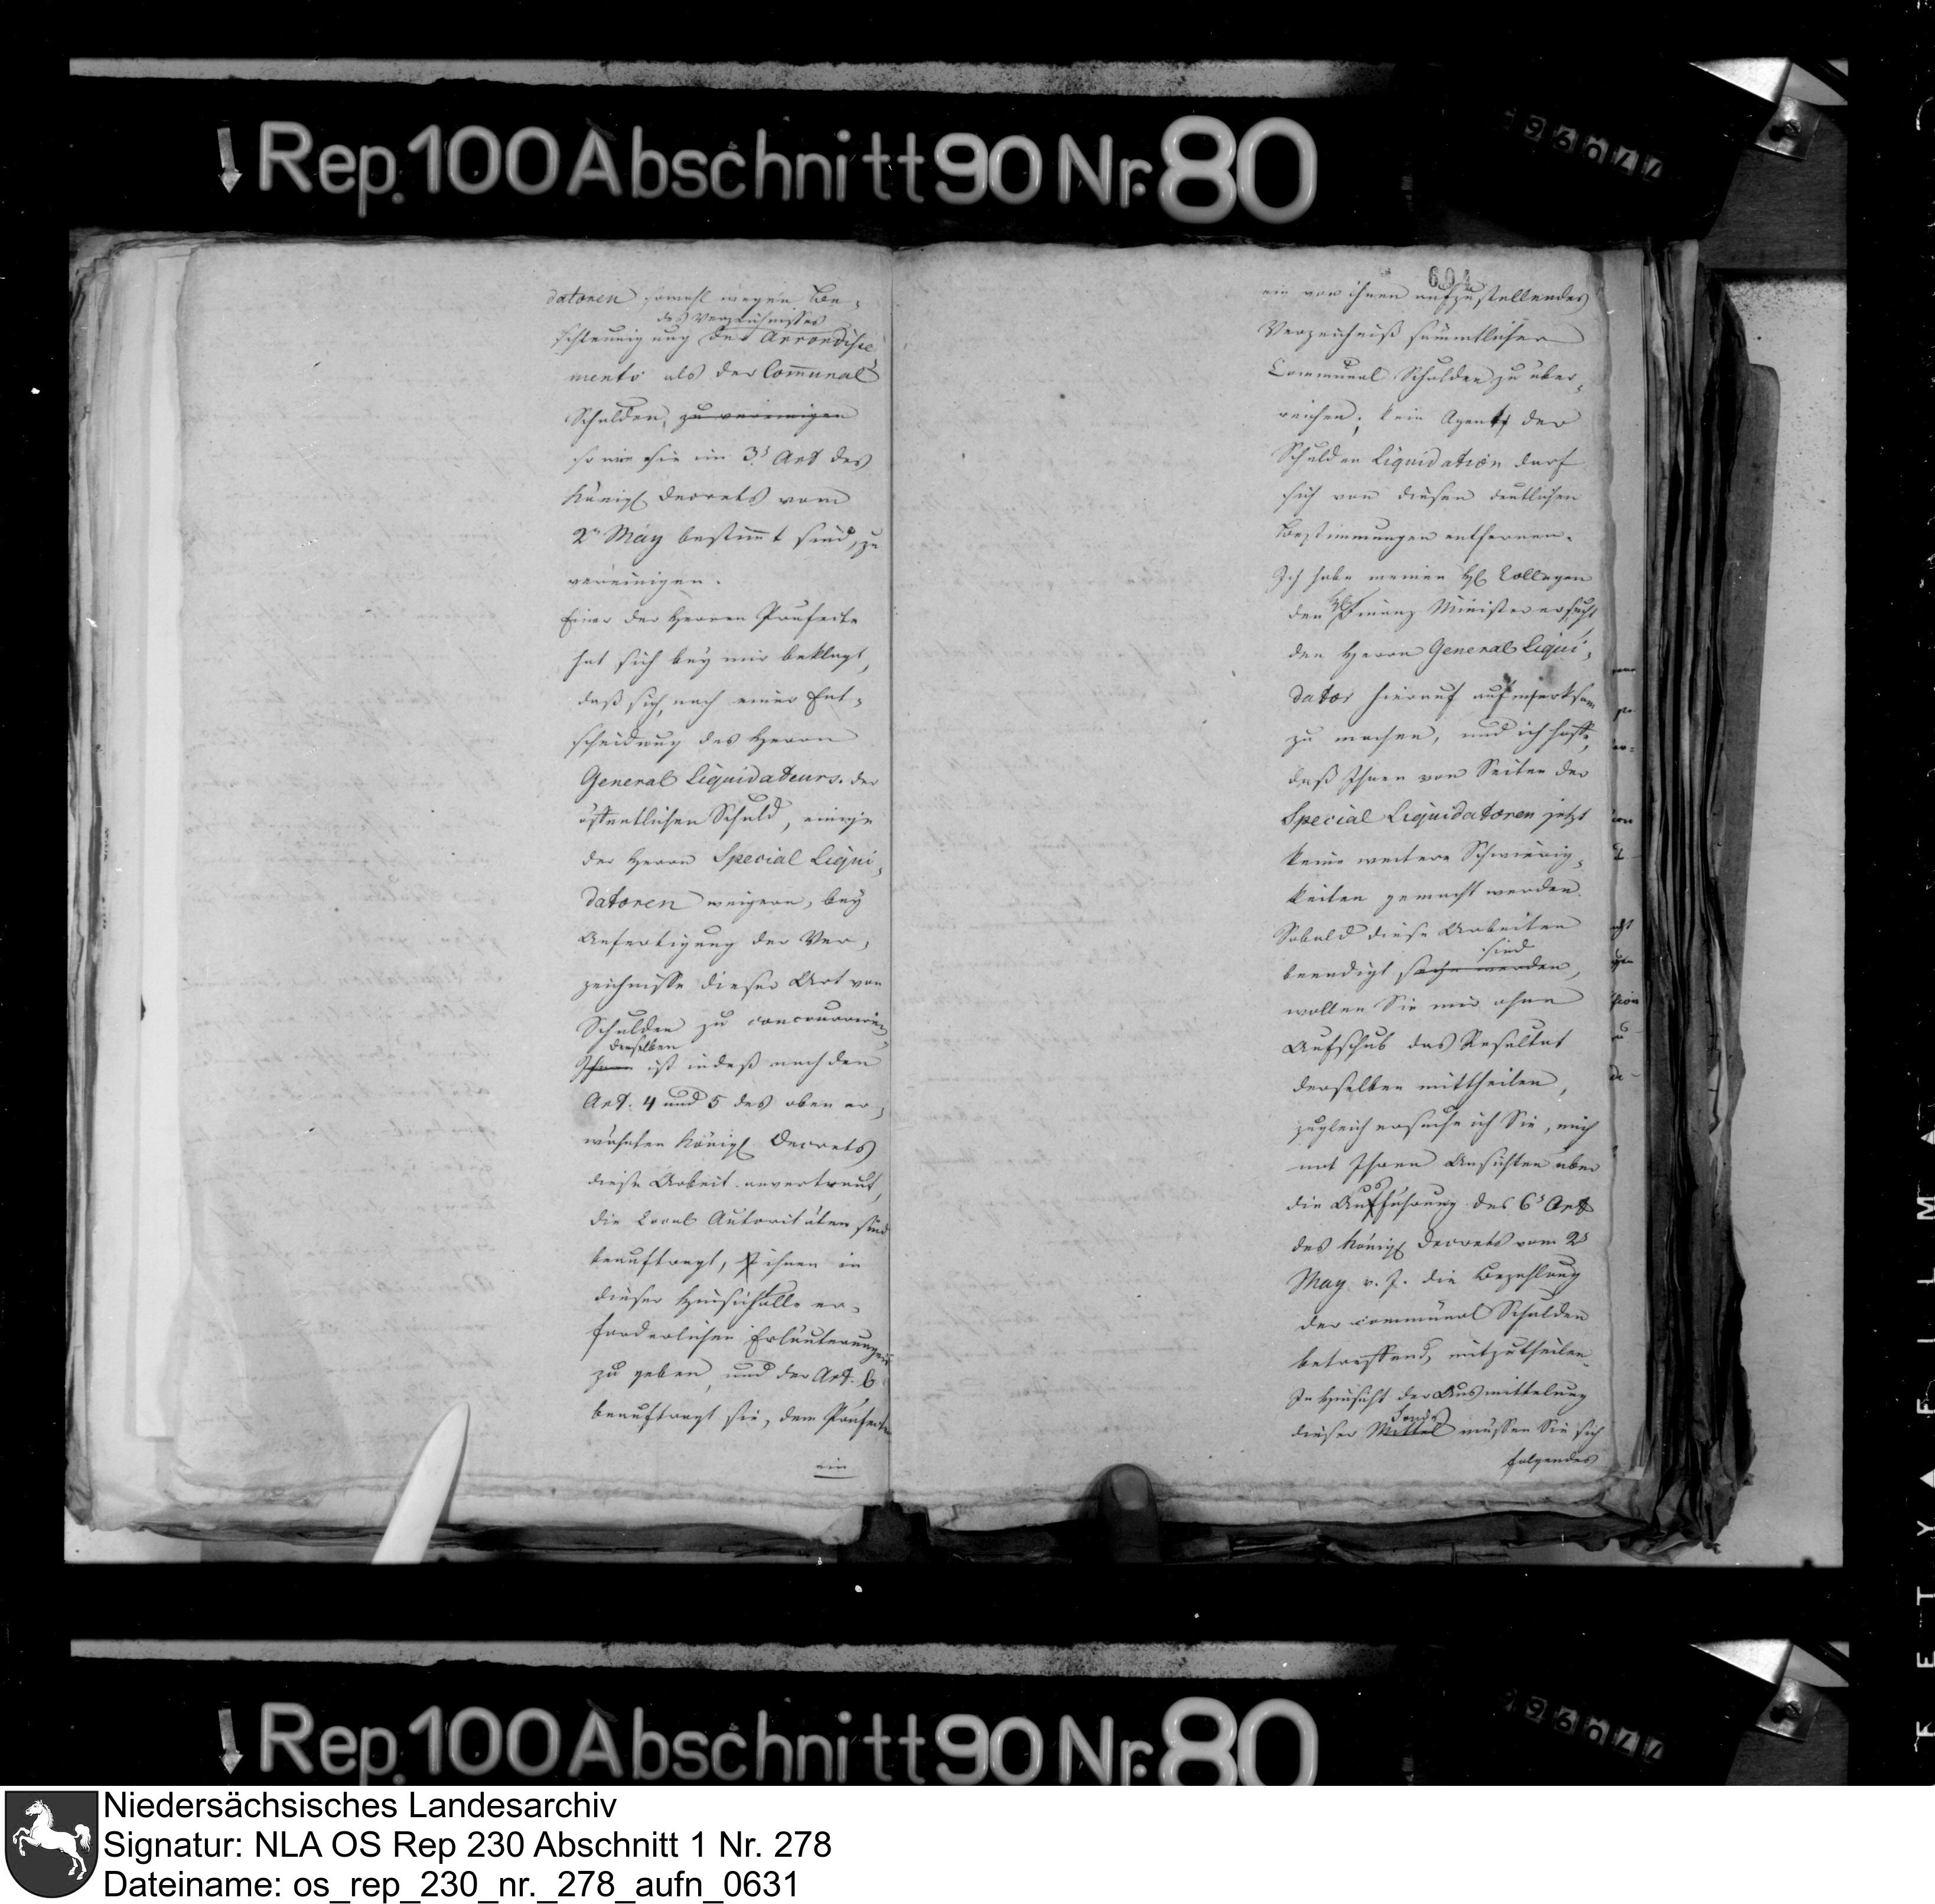 Rep. 100 Abschnitt 90 Nr. 80
datoren sowohl wegen Be-
des Verzeichnisses
schleunigung der Arrondisse
ments als der Communal
Schulden, zu vereinigen
so wie sie im 3s Art des
Königl Decrets vom
2n May bestimmt sind, zu
vereinigen.
Einer der Herren Präfecte
hat sich bey mir beklagt,
daß sich, nach einer Ent-
scheidung des Herrn
General Liquidateurs der
öffentlichen Schuld, einige
der Herrn Special Liqui-
datoren weigern, bey
Anfertigung der Ver-
zeichnisse dieser Art von
Schulden zu concurriren
denselben
Ihnen ist indeß nach den
Art. 4 und 5 des oben er-
wähnten Königl Decrets
diese Arbeit anvertraut,
die Local Autoritäten sind
beauftragt, ihnen in
dieser Hinsicht alle er-
forderlichen Erläuterungen
zu geben, und der Art. 6
beauftragt sie, dem Präfecten
ein
604
ein von ihnen aufzustellendes
Verzeichniß sämmtlicher
Communal Schulden zu über-
reichen; kein Agent der
Schulden Liquidation darf
sich von diesen deutlichen
Bestimmungen entfernen.
Ich habe meinen H Collegen
den Finanz Minister ersucht
den Herrn General Liqui-
dator hierauf aufmerksam
zu machen, und ich hoffe,
daß Ihnen von Seiten der
Special Liquidatoren jetzt
keine weitere Schwierig-
keiten gemacht werden.
Sobald diese Arbeiten
sind
beendigt seyn werden,
wollen Sie mir ohne
Aufschub das Resultat
derselben mittheilen,
zugleich ersuche ich Sie, mich
mit Ihren Ansichten über
die Ausführung des 6s Art
des Königl Decrets vom 2s
May v. J. die Bezahlung
der communal Schulden
betreffend, mitzutheilen.
In Hinsicht der Ausmittelung
Fonds
dieser Mittel müssen Sie sich
folgendes
Rep. 100 Abschnitt 90 Nr. 80
Niedersächsisches Landesarchiv
Signatur: NLA OS Rep 230 Abschnitt 1 Nr. 278
Dateiname: os_rep_230_nr._278_aufn_0631